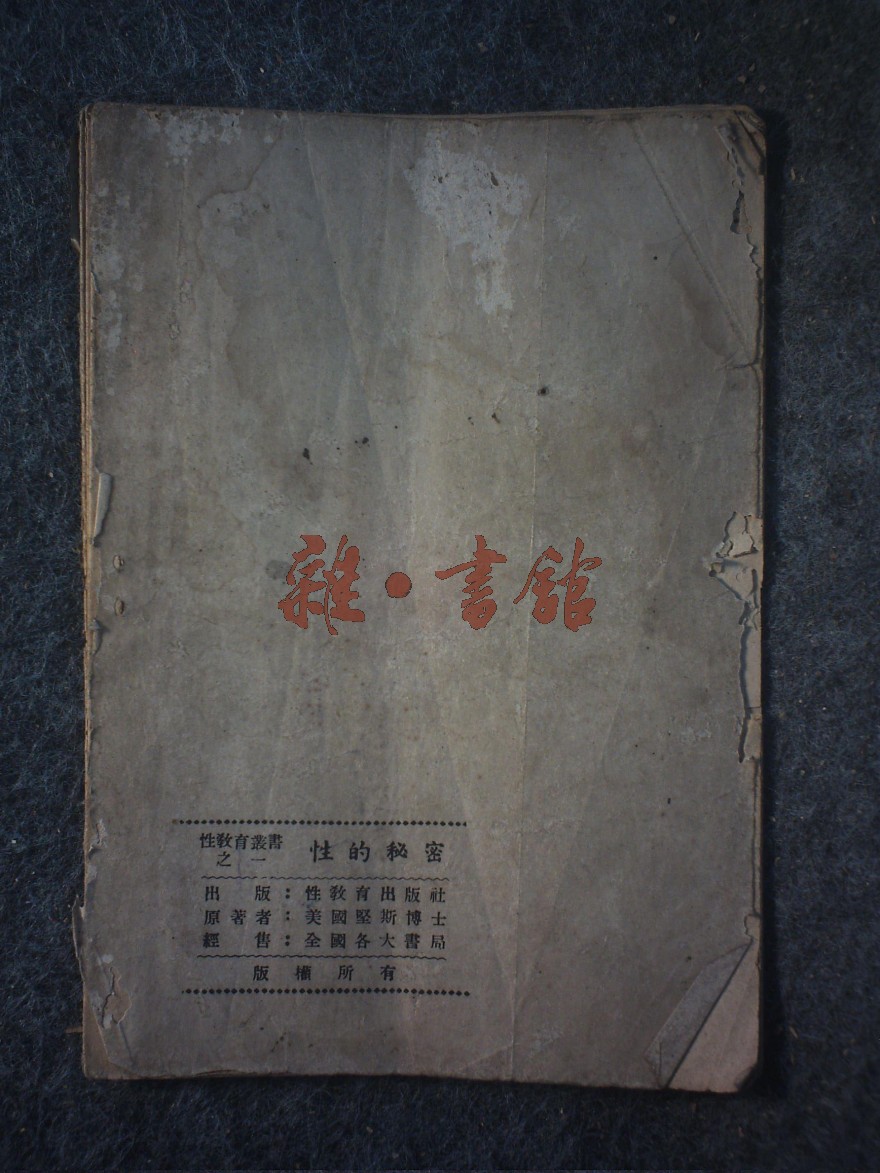 雜•書館
性教育叢書
之一
性的秘密
出版：性教育出版社
原著者：美國堅斯博士
經售：全國各大書局
版權所有